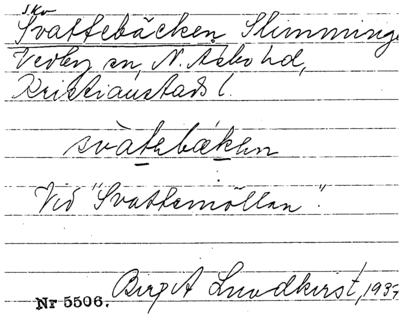 Skv
Svattebäcken, Slimminge
Vedby sn, N. Åsbo hd,
Kristianstads l.
svàtebäken
Vid "Svattemöllan".
Nr 5506. Birgit Lundkvist, 1937